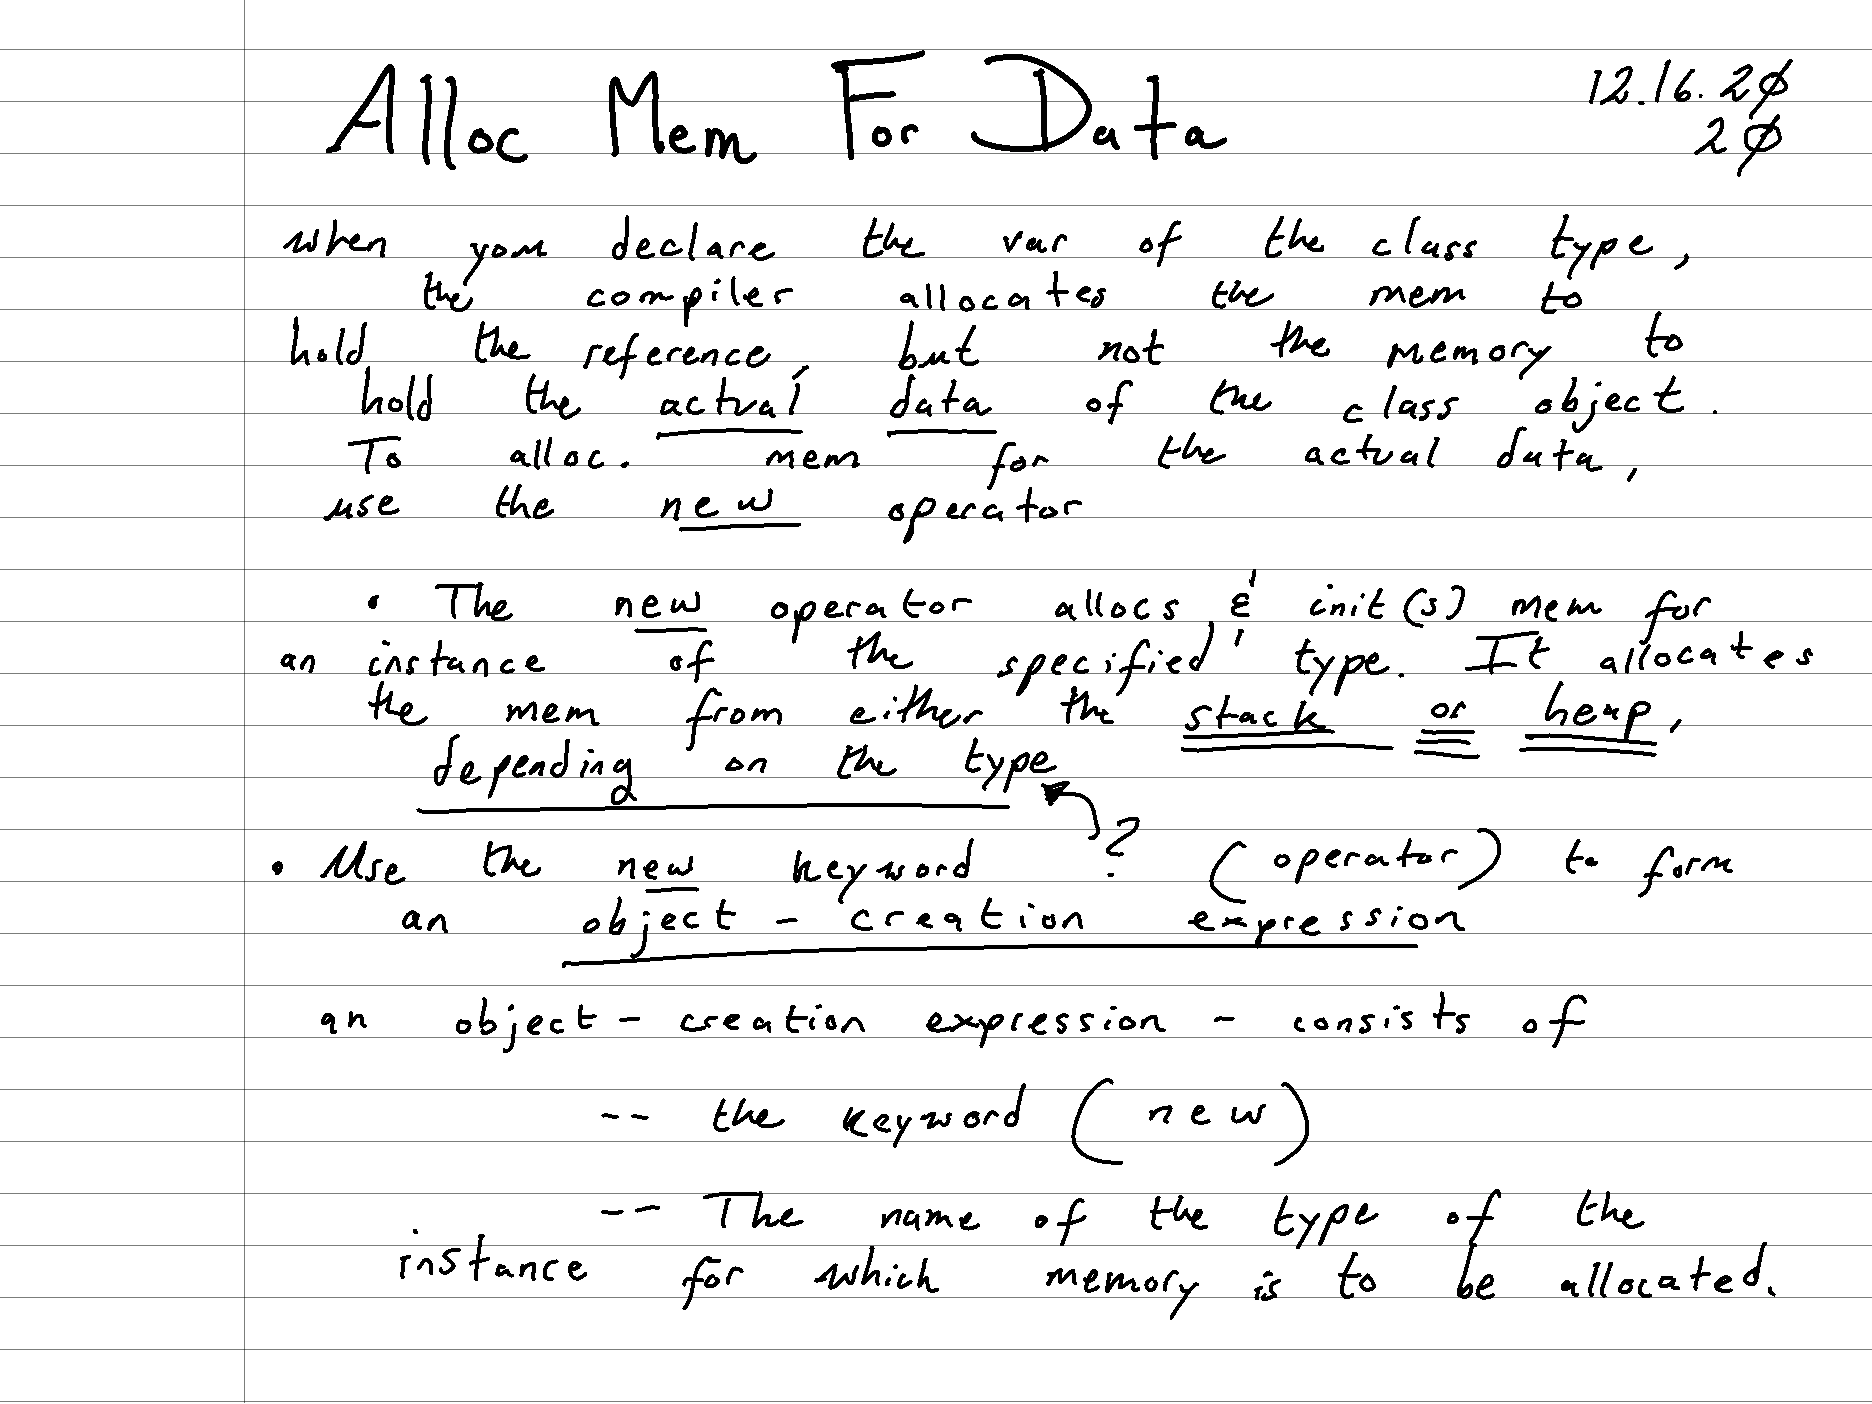 Alloc Mem For Data
12.16.2Ø
2Ø
when you declare the var of the class type,
the compiler allocates the mem to
hold the reference, but not the memory to
hold the actual data of the class object.
To alloc. mem for the actual data,
use the new operator
• The new operator allocs & init(s) mem for
an instance of the specified type. It allocates
the mem from either the stack or heap,
depending on the type
• Use the new keyword ? (operator) to form
an object - creation expression
an object - creation expression - consists of
-- the keyword (new)
-- The name of the type of the
instance for which memory is to be allocated.